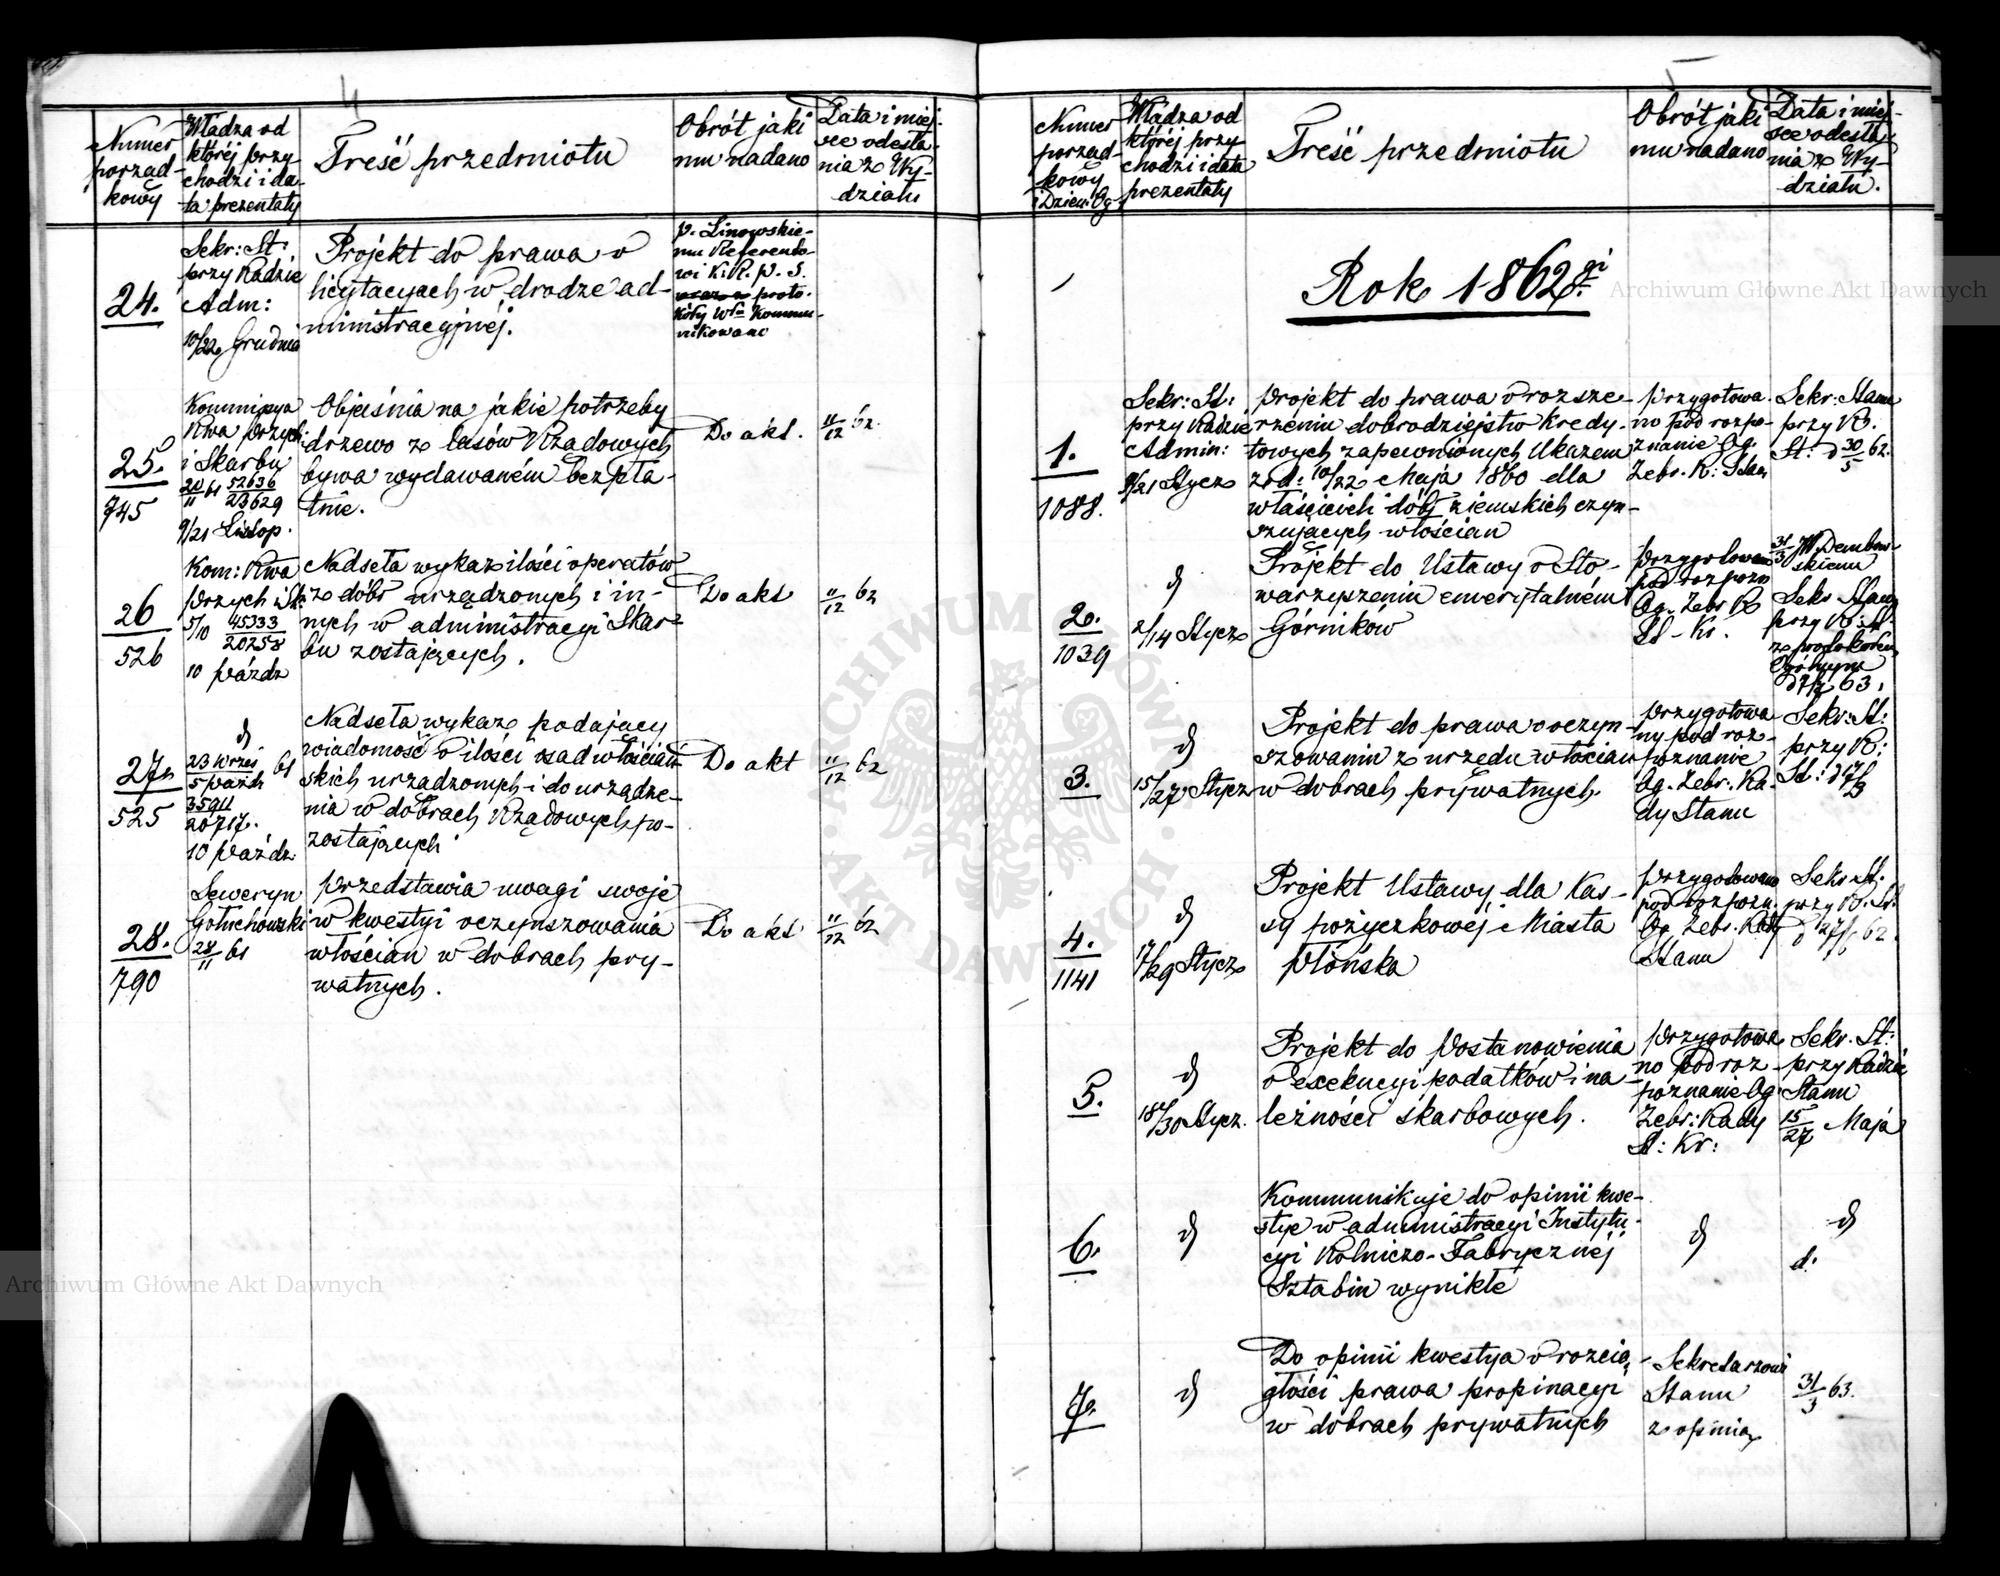 4
Numer
porząd-
kowy
Władza od
której przy-
chodzi i da-
ta prezentaty
Treść przedmiotu
Obrót jaki
mu nadano
Data i miej-
sce odesła-
nia z Wy-
działu
24.
Sekr: St:
przy Radzie
Adm:
10/22 Grudnia
Projekt do prawa o
licytacyach w drodze ad-
ministracyjnéj.
P. Linowskie-
mu Referendo-
wi K. R. P. S.
proto-
kóły Kommu-
nikowano
25.
745
Kommissya
Rwa Przych:
i Skarbu
20/11 61 52636/23629
9/21 Listop.
Objaśnia na jakie potrzeby
drzewo z lasów Rządowych
bywa wydawaném bezpła-
tnie.
Do akt.
11/12 62.
26
526
Kom: Rwa
Przych i Sk:
5/10 45333/20258
10 Paźdz
Nadseła wykaz ilości operatów
z dóbr urządzonych i in-
nych w administracyi Skar-
bu zostających.
Do akt
11/12 62
27.
525
d
23 Wrześ/5 Paźdz 61
35911
20717.
10 Paźdz
Nadseła wykaz podający
wiadomość o ilości osad włościań-
skich urządzonych i do urządze-
nia w dobrach Rządowych po-
zostających
Do akt
11/12 62
28.
790
Seweryn
Gołuchowski
28/11 61
Przedstawia uwagi swoje
w kwestyi oczynszowania
włościan w dobrach pry-
watnych.
Do akt
11/12 62
5
Numer
porząd-
kowy
i Dzien: Og
Władza od
któréj przy
chodzi i data
prezentaty
Treść przedmiotu
Obrót jaki
mu nadano
Data i miej-
sce odesła-
nia z Wy-
działu.
Rok 1862gi.
1.
1088.
Sekr: St:
przy Radzie
Admin:
9/21 Stycz
Projekt do prawa o rozsze-
rzeniu dobrodziejstw Kredy-
towych zapewnionych Ukazem
z d: 10/22 Maja 1860 dla
właścicieli dóbr ziemskich czyn-
szujących włościan
Przygotowa-
no pod rozpo-
znanie Og.
Zebr. R: Stanu
Sekr: Stanu
przy R.
St: d 30/5 62.
2.
1039
d
2/14 Stycz
Projekt do Ustawy o Sto-
warzyszeniu emerytalném
Górników
Przygotowano
pod rozpozn
Og. Zebr R
St - Kr.
31/3 W Dembow-
skiemu
Sekr Stanu
przy R: St.
z protokółem
Ogólnym
d 7/2 63.
3.
d
15/27 Stycz
Projekt do prawa o oczyn-
szowaniu z urzędu włościan
w dobrach prywatnych.
Przygotowa-
ny pod roz-
poznanie
Og. Zebr. Ra-
dy Stanu
Sekr: St:
przy R:
St: d
4.
1141
d
17/29 Stycz
Projekt Ustawy dla Kas-
sy pożyczkowéj Miasta
Płońska
Przygotowano
pod rozpozn.
Og. Zebr. Rady
Stanu
Sekr St.
przy R. St.
62.
5.
d
18/30 Stycz.
Projekt do Postanowienia
o exekucyi podatków i na-
leżności skarbowych.
Przygotowa-
no pod roz-
poznanie Og.
Zebr: Rady
St: Kr:
Sekr. St:
przy Radzie
Stanu
15/27 Maja
6.
d
Kommunikuje do opinii kwe-
stye w administracyi Instytu-
cyi Rolniczo-Fabrycznéj
Sztabin wynikłe
d
d
d.
7.
d
Do opinii kwestya o rozcią-
głości prawa propinacyi
w dobrach prywatnych
Sekretarzowi
Stanu
z opinią
31/3 63.
Archiwum Główne Akt Dawnych
Archiwum Główne Akt Dawnych
ARCHIWUM GŁÓWNE AKT DAWNYCH